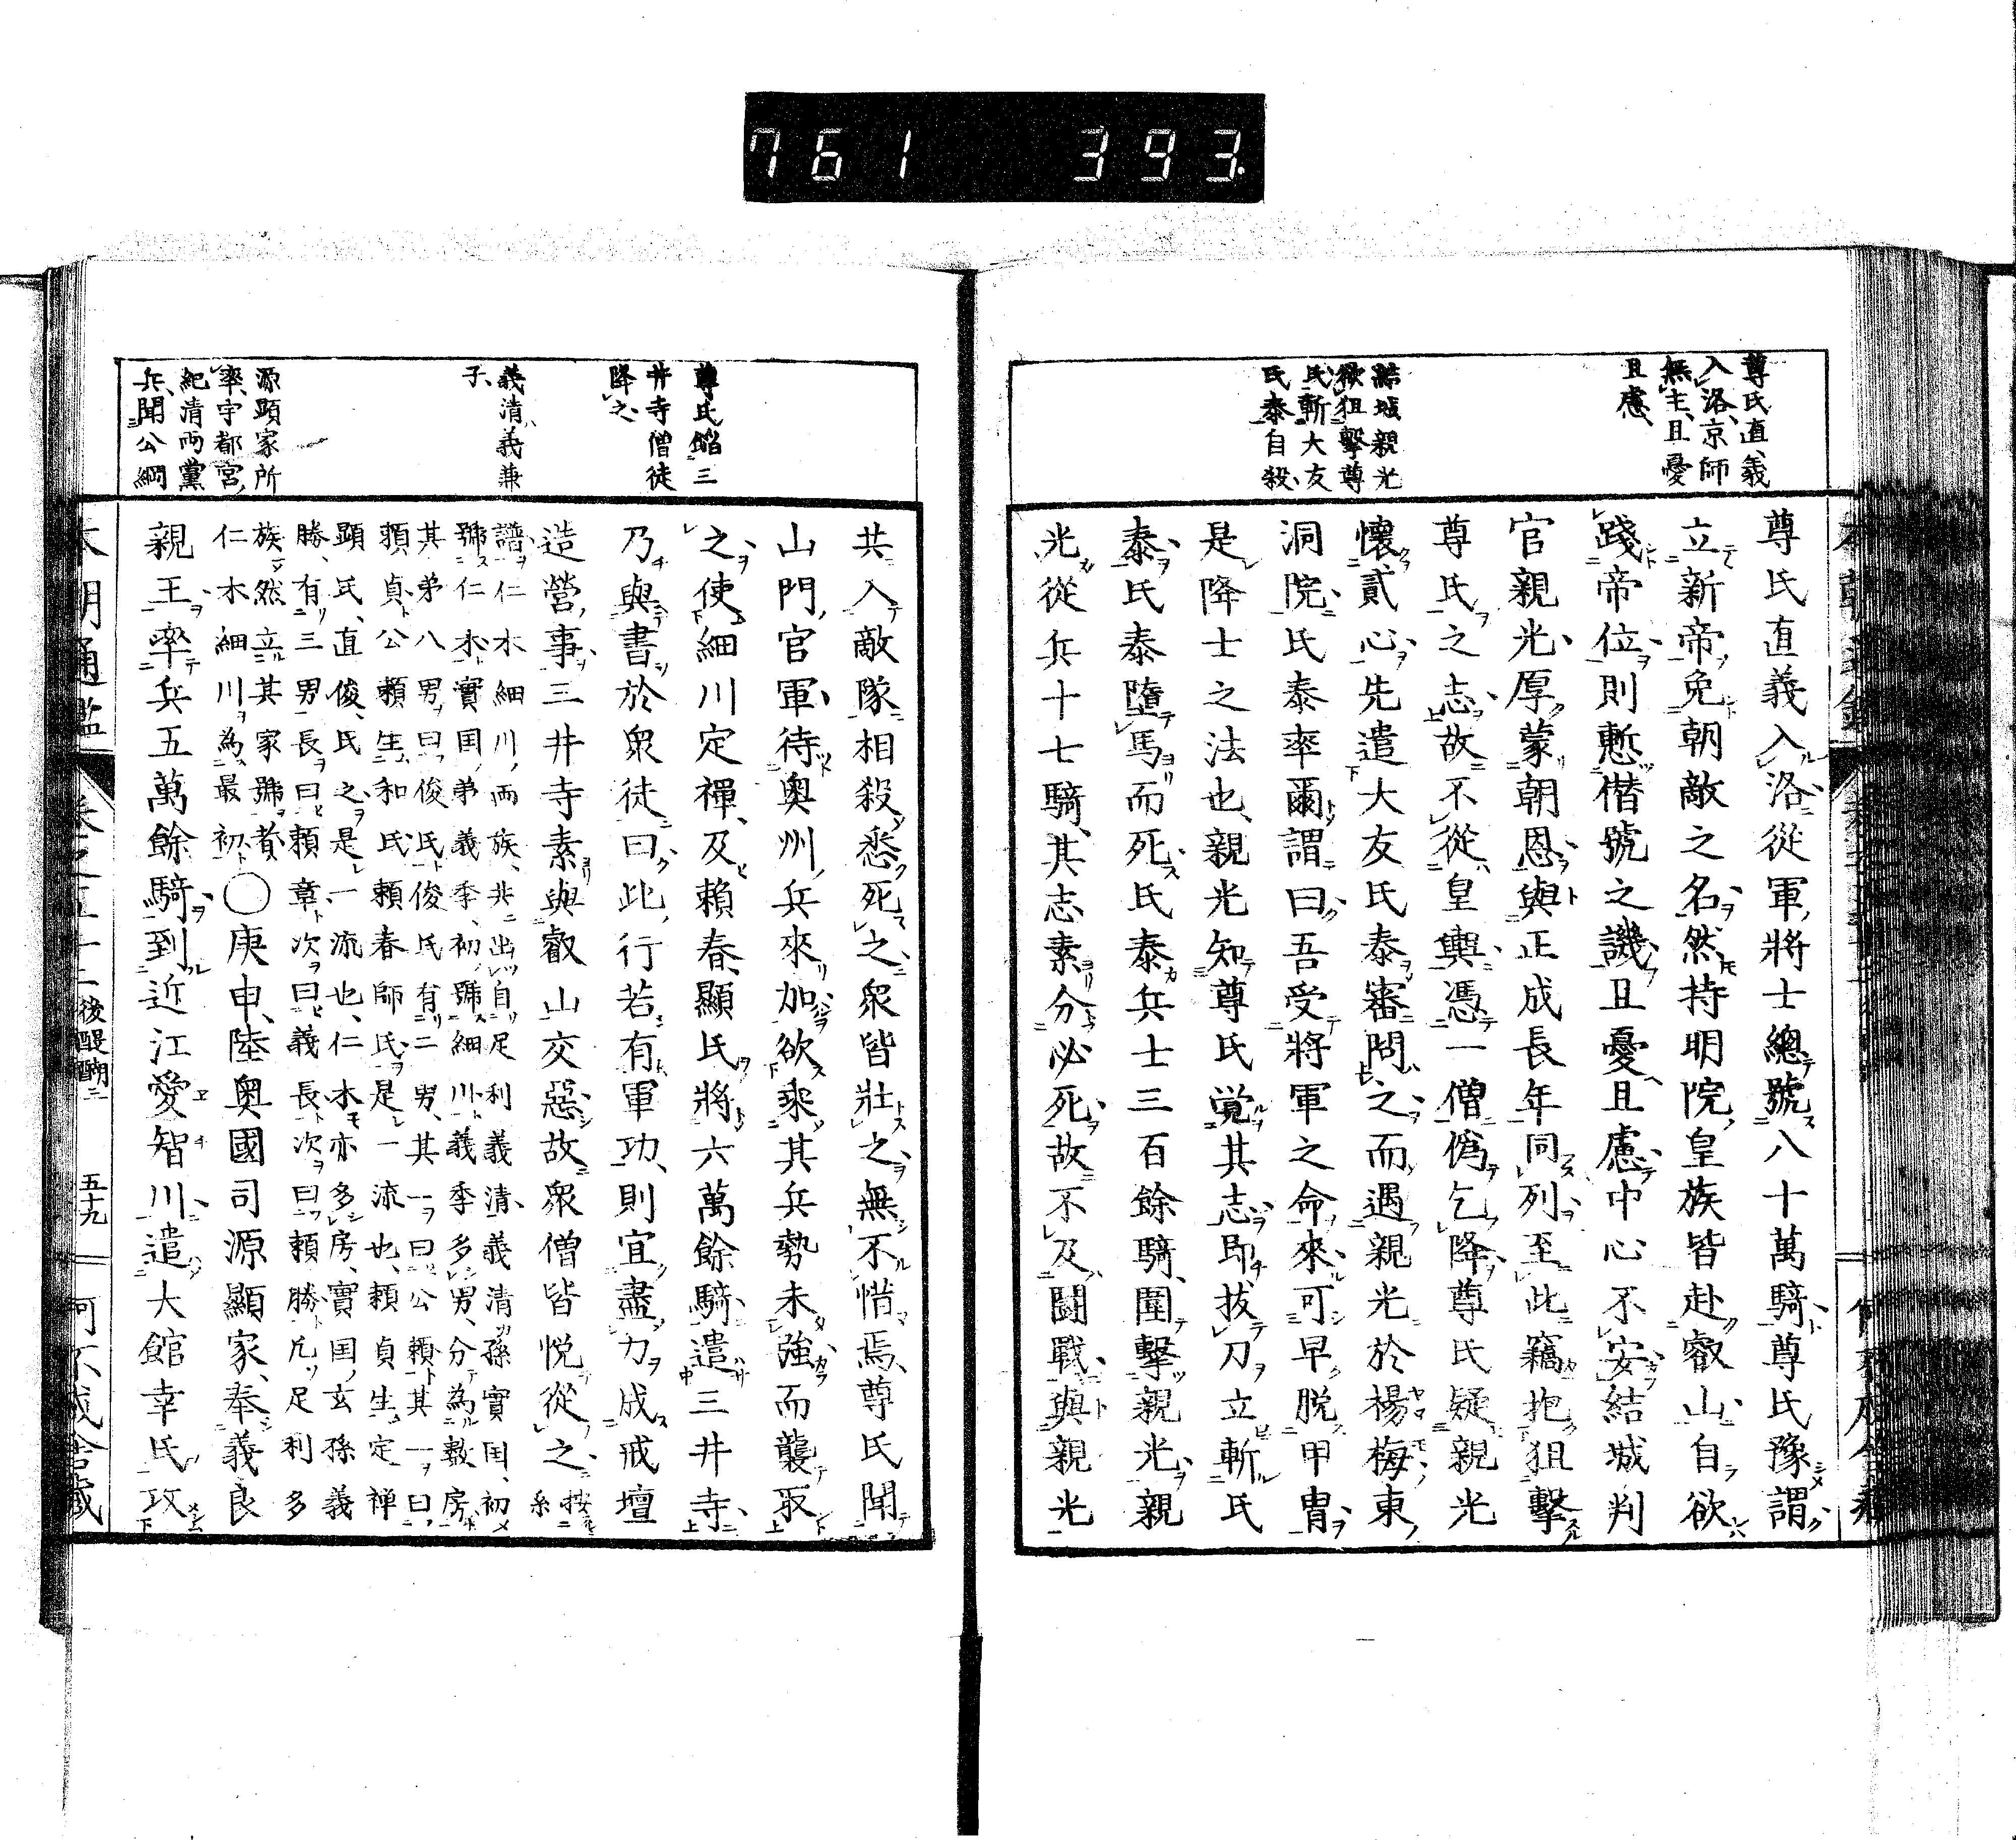 761 393.
尊氏直義
入洛京師
無主且憂
且慮
結城親光
欲狙擊尊
氏斬大友
氏泰自殺
尊氏直義入洛從軍將士總號八十萬騎尊氏豫謂
立新帝免朝敵之名然持明院皇族皆赴叡山自欲
踐帝位則慙僣號之譏且憂且慮中心不安結城判
官親光厚蒙朝恩與正成長年同列至此竊抱狙擊
尊氏之志故不從皇輿憑一僧僞乞降尊氏疑親光
懷貳心先遣大友氏泰審問之而遇親光於楊梅東
洞院氏泰率爾謂曰吾受將軍之命來可早脱甲冑
是降士之法也親光知尊氏覚其志即拔刀立斬氏
泰氏泰墮馬而死氏泰兵士三百餘騎圍擊親光親
光從兵十七騎其志素分必死故不及鬪戰與親光
尊氏餡三
井寺僧徒
降之
義清義兼
子
源顯家所
率宇都宮
紀清両黨
兵聞公綱
共入敵隊相殺悉死之衆皆壯之無不惜焉尊氏聞
山門官軍待奥州兵來加欲乘其兵勢未強而襲取
之使細川定禪及賴春顯氏將六萬餘騎遣三井寺
乃與書於衆徒曰此行若有軍功則宜盡力成戒壇
造營事三井寺素與叡山交惡故衆僧皆悦從之按系
譜仁木細川両族共出自足利義清義清孫實国初
號仁木實国弟義季初號細川義季多男分為數房
其弟八男曰俊氏俊氏有二男其一曰公頼其一曰
頼貞公頼生和氏頼春師氏是一流也頼貞生定禅
顕氏直俊氏之是一流也仁木亦多房實国玄孫義
勝有三男長曰頼章次曰義長次曰頼勝凡足利多
族然立其家號者
仁木細川為最初〇庚申陸奥國司源顯家奉義良
親王率兵五萬餘騎到近江愛智川遣大館幸氏攻
本朝通鑑 卷之五十二 後醍醐二 五十九